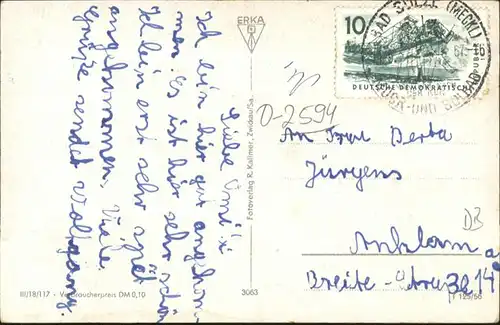 Liebe Omi!
Ich bin hier gut angekom-
men. Es ist hier sehr schön
Ich bin erst sehr spät
angekommen. Viele
Grüße sendet Wolfgang.
ERKA
Fotoverlag R. Kallmer, Zwickau/Sa.
10
DEUTSCHE DEMOKRATISCHE
BAD SÜLZE (MECKL)
MOOR- UND SOLBAD
O-2594
An Frau Berta
Jürgens
DB
Anklam
Breite-Straße 14
III/18/117 • Verbraucherpreis DM 0,10
3063